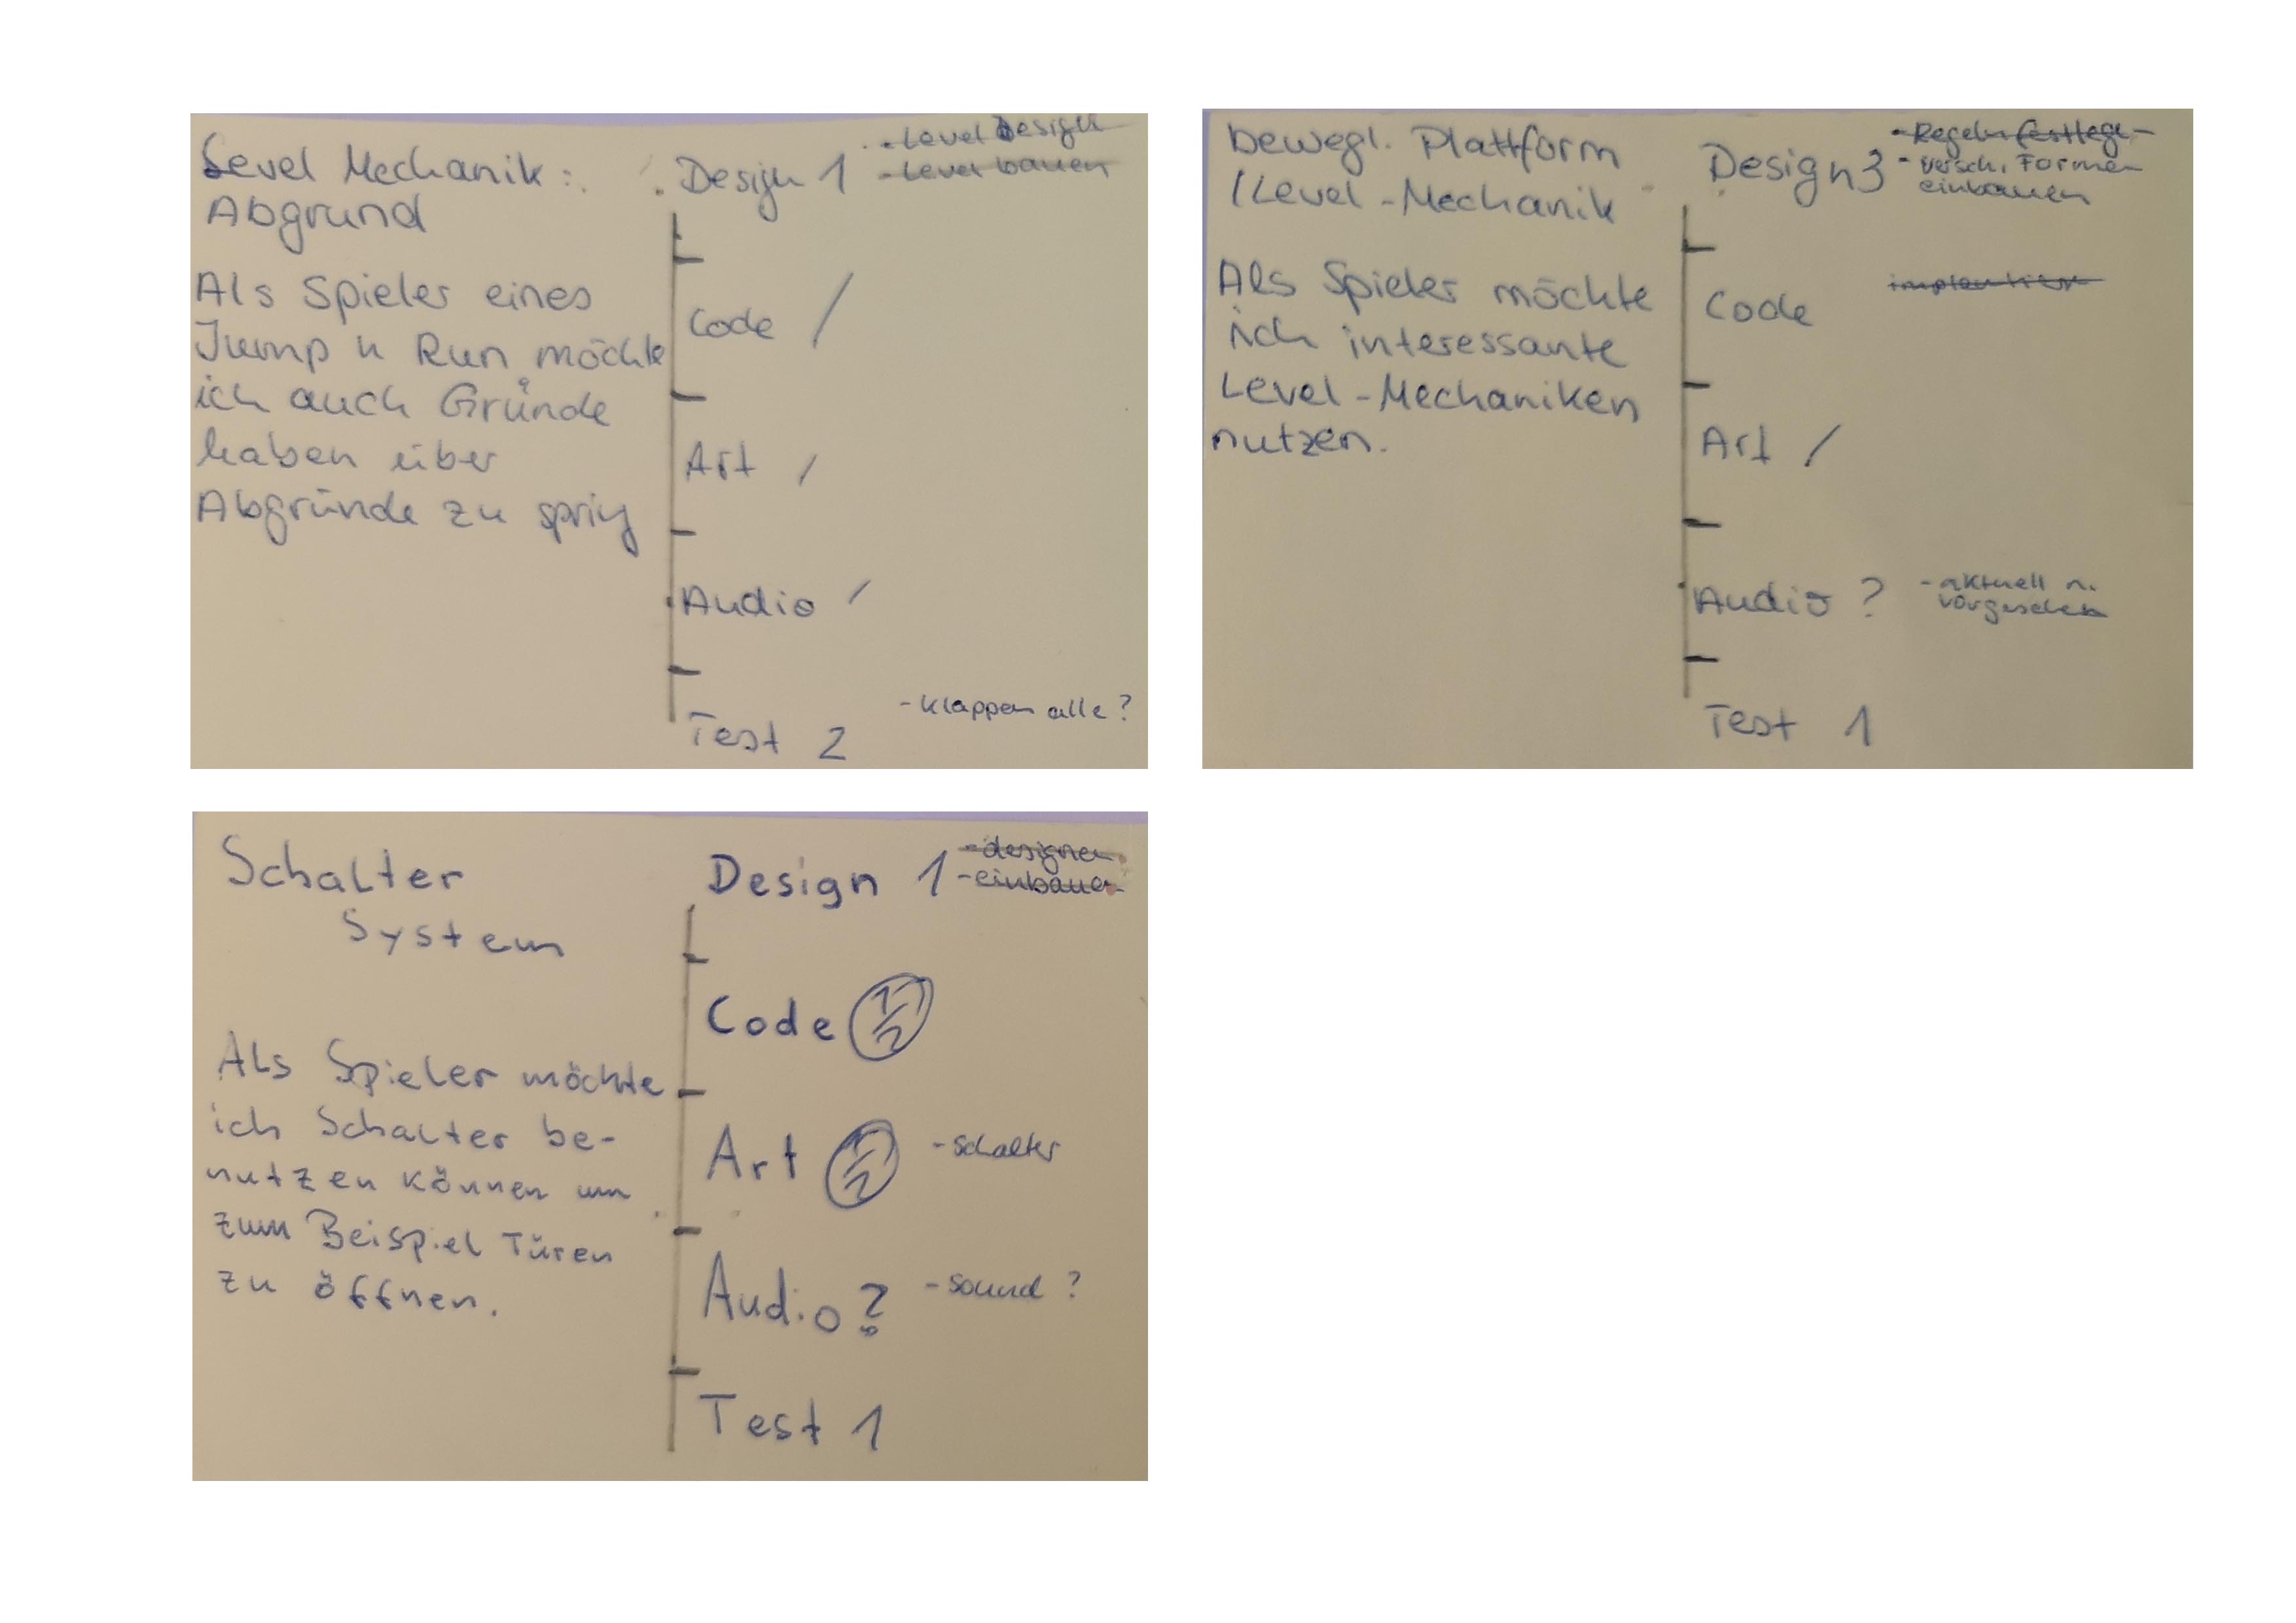 Level Mechanik:
Abgrund
Als Spieler eines
Jump n Run möchte
ich auch Gründe
haben über
Abgründe zu spring
Design 1
- Level Design
- Level bauen
Code /
Art /
Audio /
Test 2
- Klappen alle?
bewegl. Plattform
/Level-Mechanik
Als Spieler möchte
ich interessante
Level-Mechaniken
nutzen.
Design 3
- Regeln festlege
- versch. Formen
einbauen
Code
Art /
Audio ?
- aktuell n.
vorgesehen
Test 1
Schalter
System
Als Spieler möchte
ich Schalter be-
nutzen können um
zum Beispiel Türen
zu öffnen.
Design 1
- designen
- einbauen
Code 1/2
Art 1/2
- Schalter
Audio?
- Sound ?
Test 1